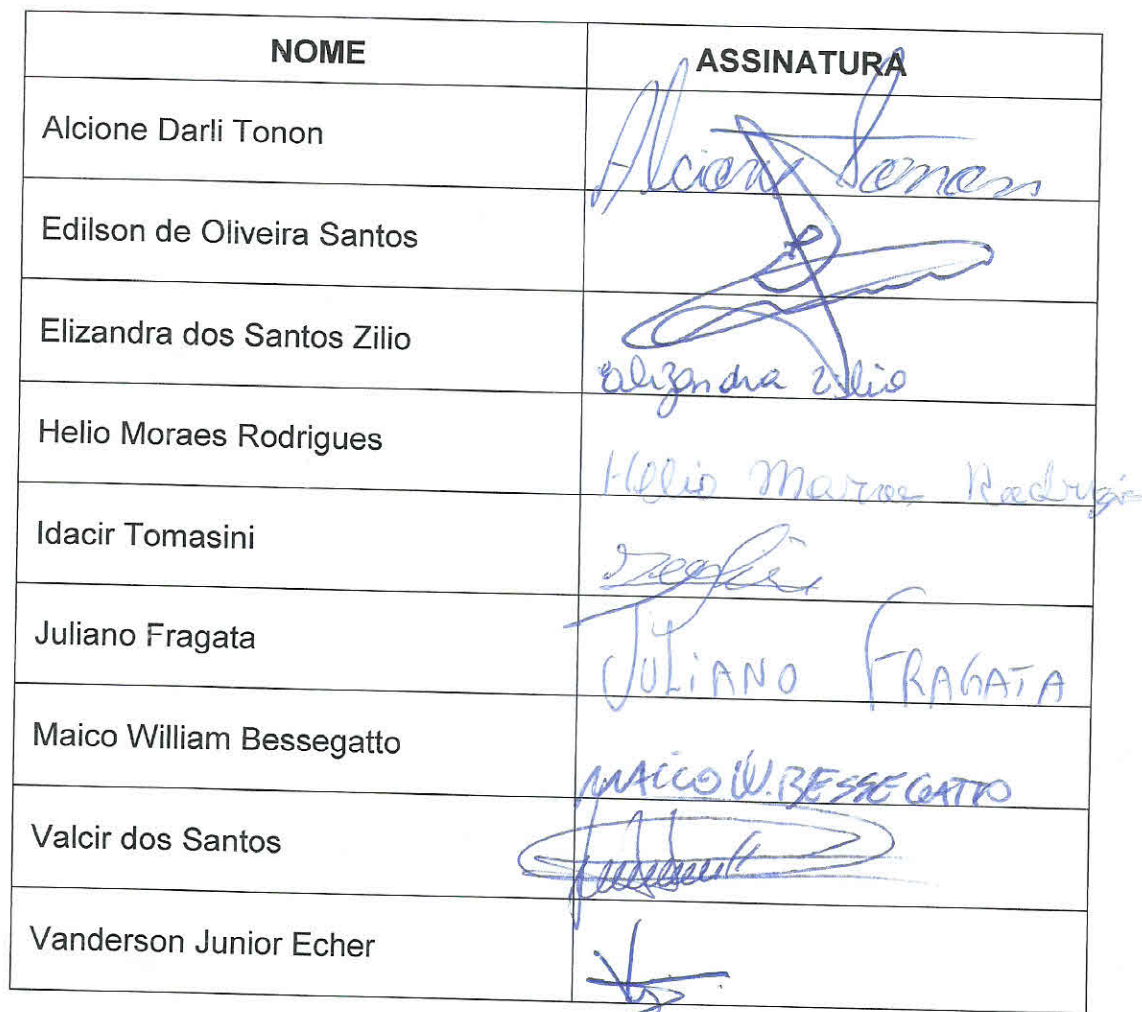 NOME ASSINATURA
Alcione Darli Tonon Alcione Tonon
Edilson de Oliveira Santos
Elizandra dos Santos Zilio elizandra zilio
Helio Moraes Rodrigues Helio Moraes
Idacir Tomasini
Juliano Fragata JULIANO FRAGATA
Maico William Bessegatto MAICO W. BESSEGATTO
Valcir dos Santos
Vanderson Junior Echer